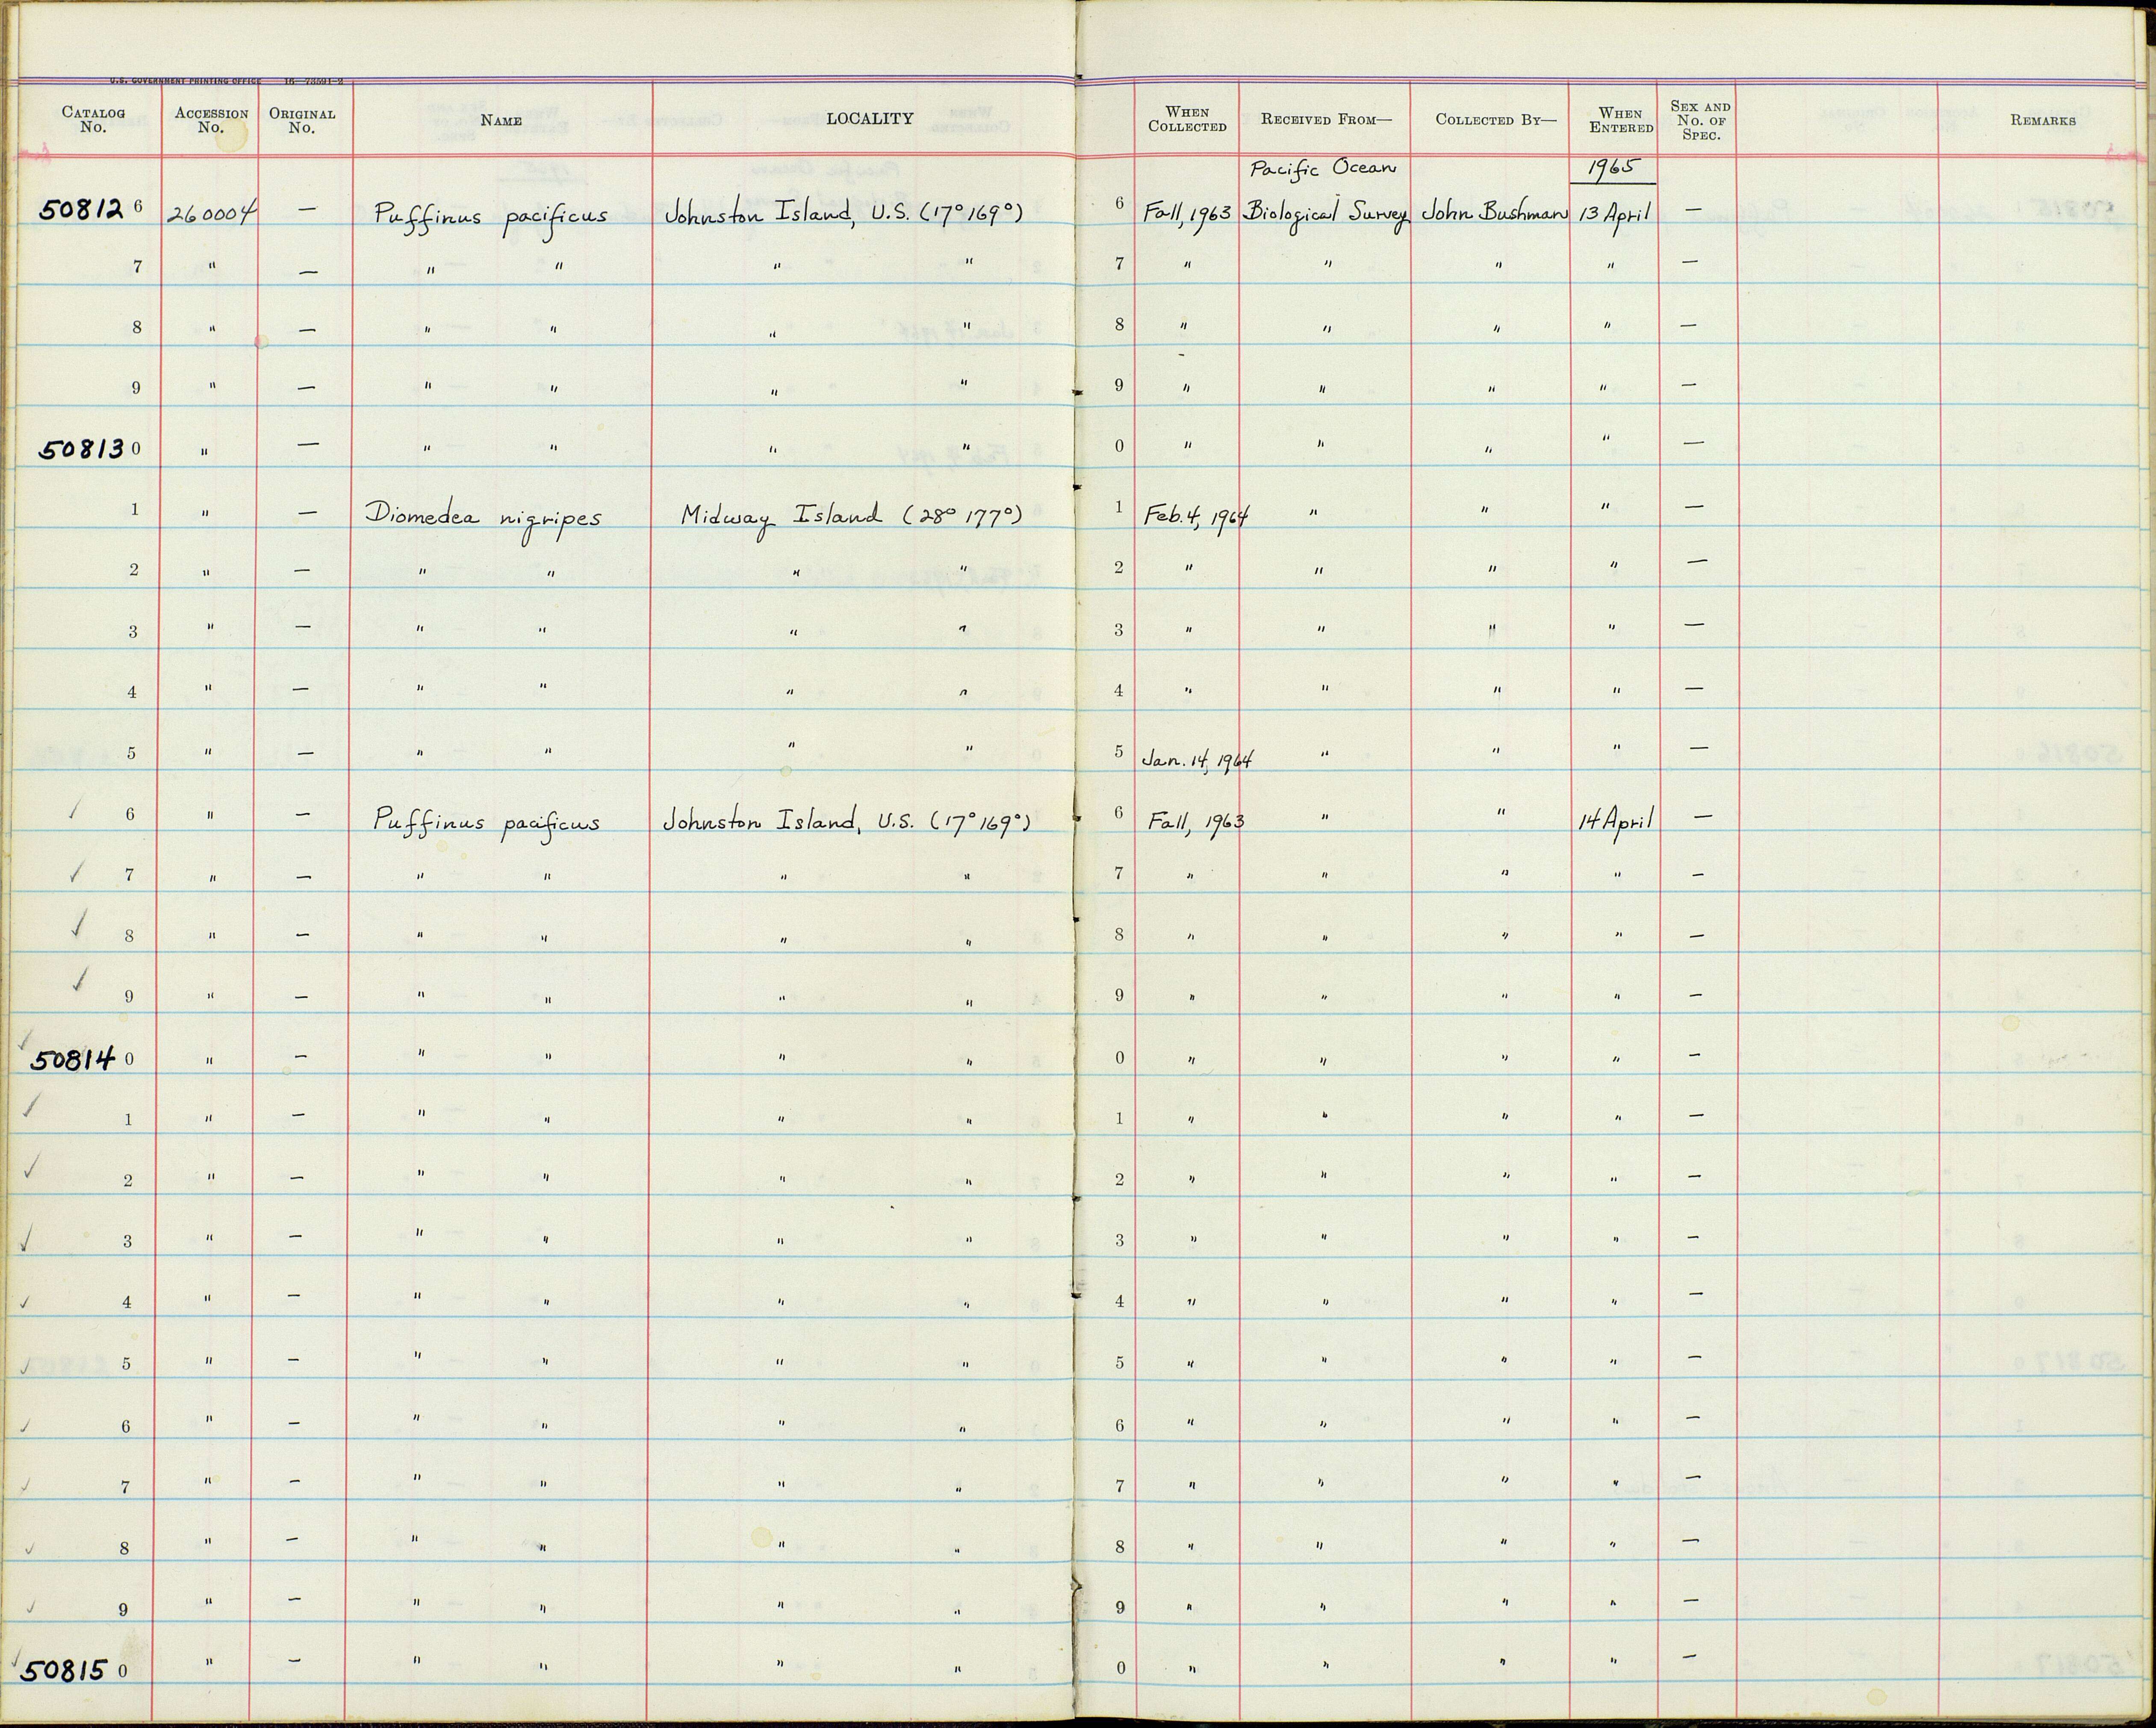 U.S. GOVERNMENT PRINTING OFFICE 16—73591-2
CATALOG No. ACCESSION No. ORIGINAL No. NAME LOCALITY WHEN COLLECTED RECEIVED FROM— COLLECTED BY— WHEN ENTERED SEX AND No. OF SPEC. REMARKS
Pacific Ocean 1965
508126 260004 — Puffinus pacificus Johnston Island, U.S. (17° 169°) 6 Fall, 1963 Biological Survey John Bushman 13 April —
7 " — " " " " 7 " " " " —
8 " — " " " " 8 " " " " —
9 " — " " " " 9 " " " " —
508130 " — " " " " 0 " " " " —
1 " — Diomedea nigripes Midway Island (28° 177°) 1 Feb. 4, 1964 " " " —
2 " — " " " " 2 " " " " —
3 " — " " " " 3 " " " " —
4 " — " " " " 4 " " " " —
5 " — " " " " 5 Jan. 14, 1964 " " " —
✓ 6 " — Puffinus pacificus Johnston Island, U.S. (17° 169°) 6 Fall, 1963 " " 14 April —
✓ 7 " — " " " " 7 " " " " —
✓ 8 " — " " " " 8 " " " " —
✓ 9 " — " " " " 9 " " " " —
✓ 508140 " — " " " " 0 " " " " —
✓ 1 " — " " " " 1 " " " " —
✓ 2 " — " " " " 2 " " " " —
✓ 3 " — " " " " 3 " " " " —
✓ 4 " — " " " " 4 " " " " —
✓ 5 " — " " " " 5 " " " " —
✓ 6 " — " " " " 6 " " " " —
✓ 7 " — " " " " 7 " " " " —
✓ 8 " — " " " " 8 " " " " —
✓ 9 " — " " " " 9 " " " " —
✓ 508150 " — " " " " 0 " " " " —